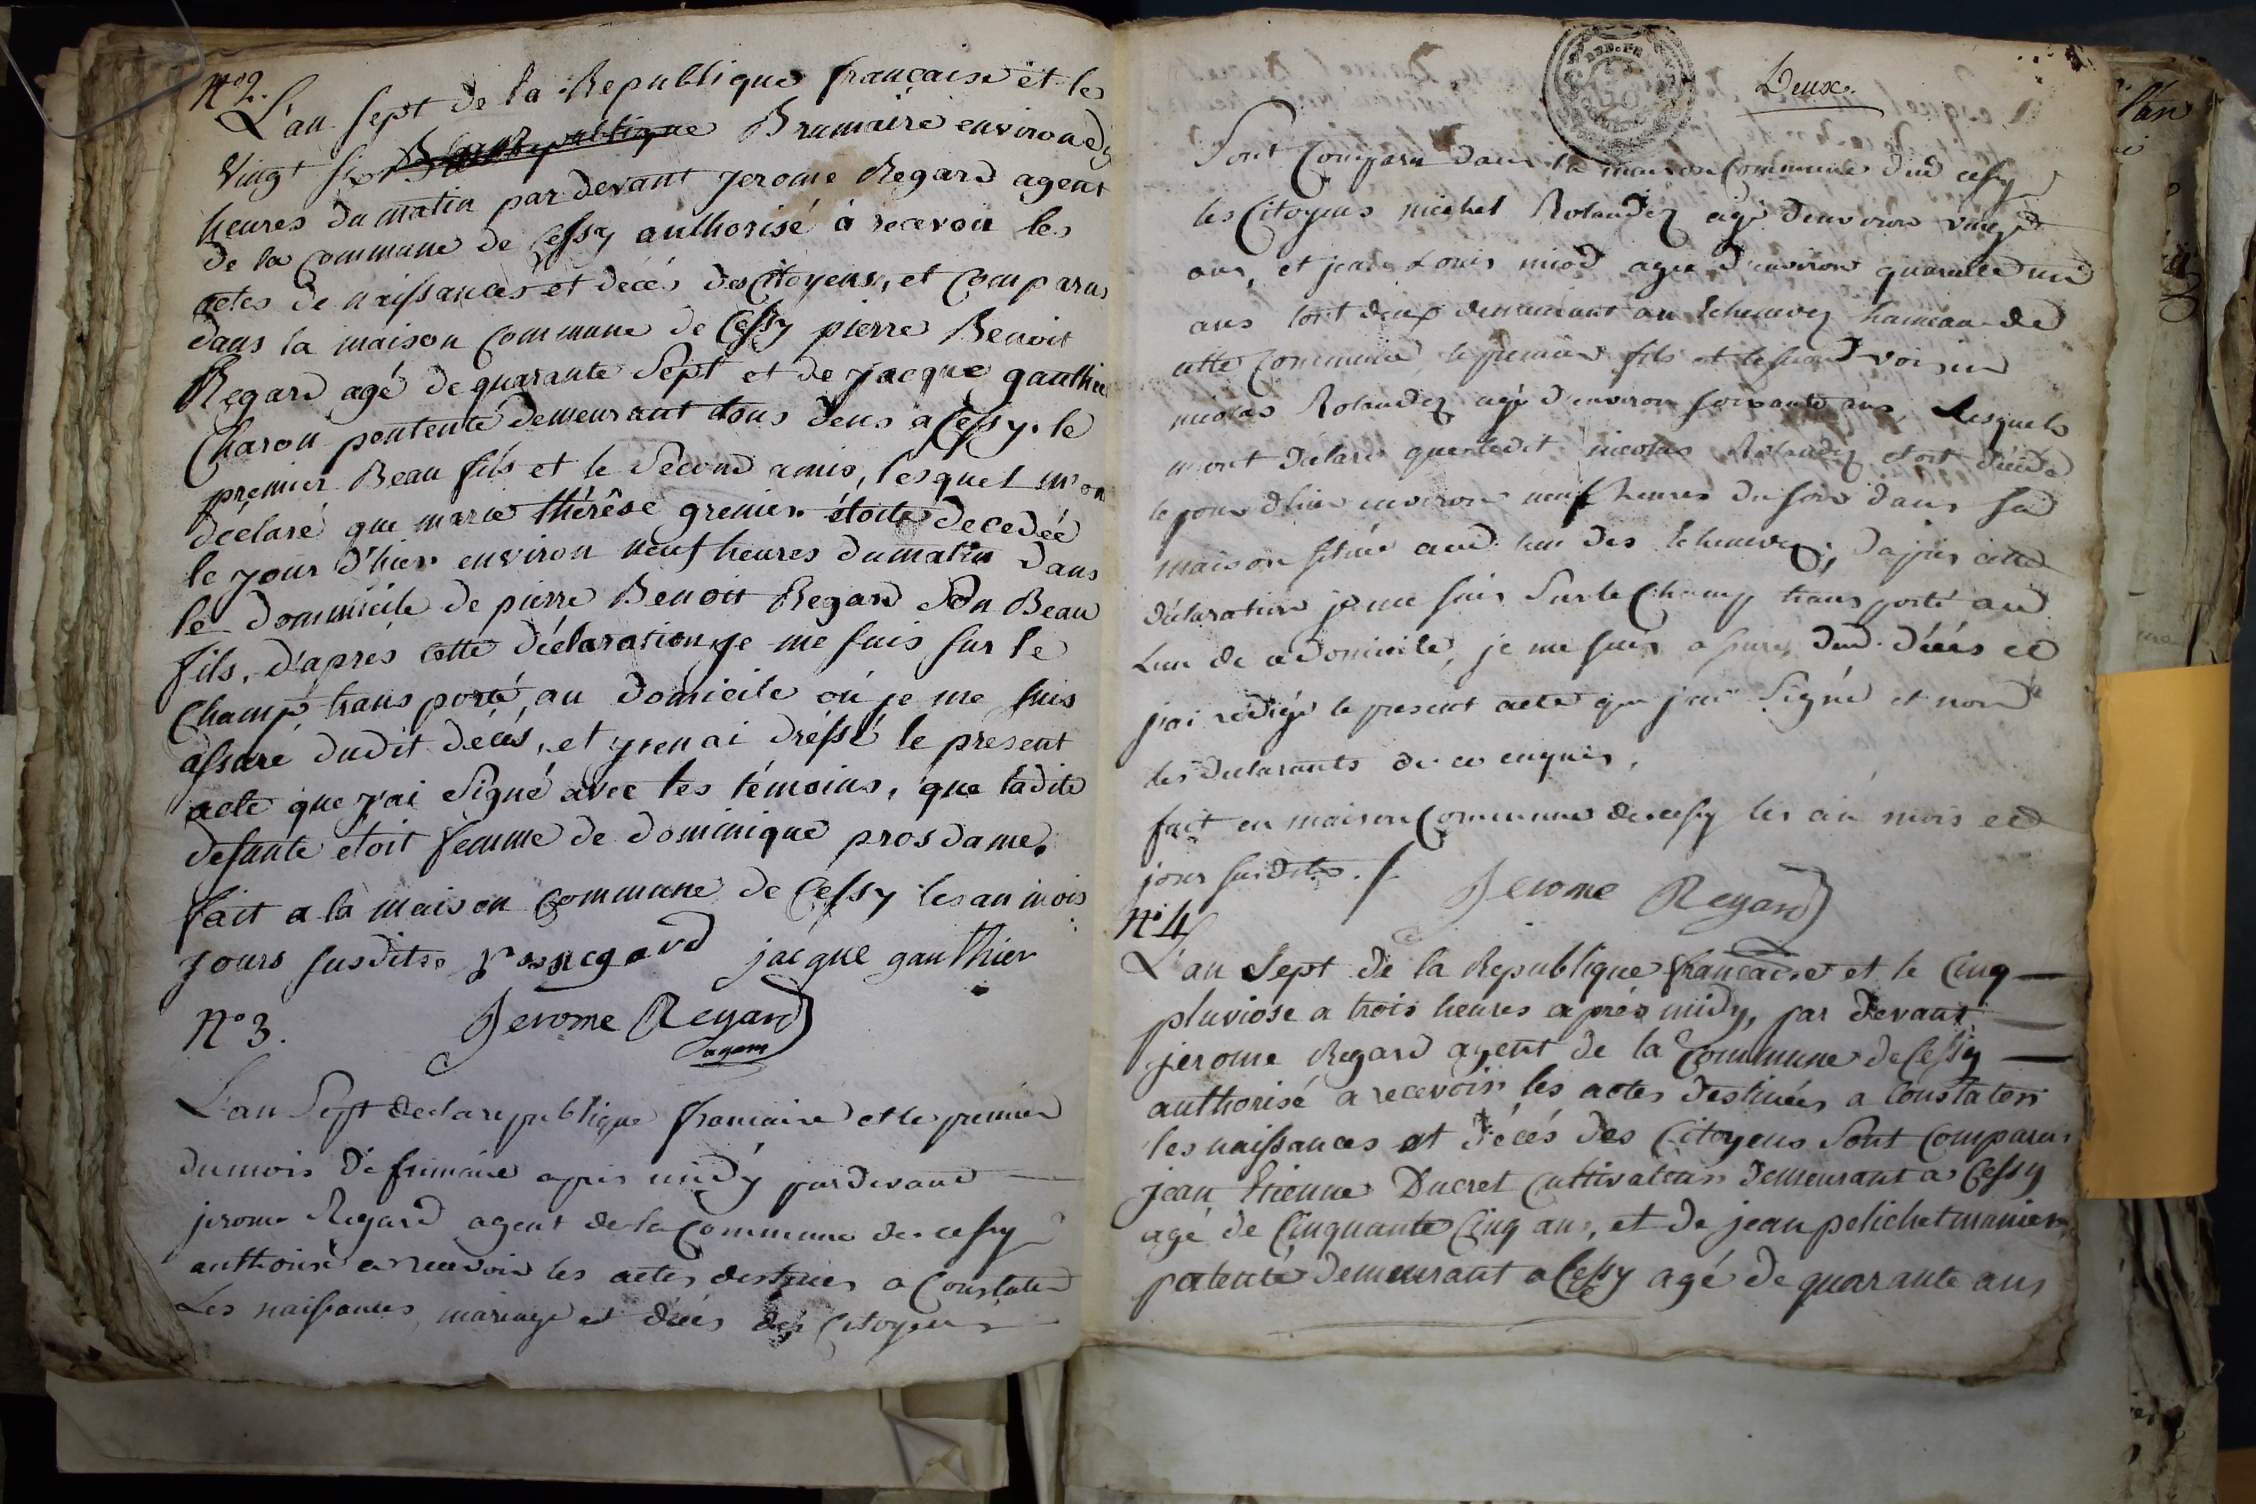 N° 2.
L'an sept de la Republique française et le
vingt six Brumaire environ dix
heures du matin par devant jerome Regard agent
de la commune de Cessy authorisé à recevoir les
actes de naissances et décés des Citoyens, et comparus
dans la maison commune de Cessy pierre Benoit
Regard agé de quarante Sept et de jacque gauthier
Charon pententé demeurant tous deus a Cessy. le
premier Beau fils et le Second amis, lesquel m'on
déclaré que marie thérêse grenier étoite decedée
le jour d'hier environ neuf heures du matin dans
le dommicile de pierre Benoit Regard Son Beau
fils, d'aprés cette déclaration, je me suis sur le
Champ transporté, au domicile où je me suis
assuré dudit décés, et j'en ai dréssé le present
acte que j'ai Signé avec les témoins, que ladite
defunte etoit femme de dominique pros dame.
fait a la maison commune de Cessy les an mois
jours susdits. regard jacque gauthier
N° 3. Jerome Regard
agent
L'an Sept de la republique francaise et le premier
du mois de frimaire apres midy pardevant
jerome Regard agent de la Commune de cessy
authorisé a recevoir les actes destinés a Constater
Les naissances, mariage et décés des Citoyens
Deux.
Sont Comparu dans la maison Commune dud cessy
les Citoyens michel Rolandez agé d'environ vingt
ans, et jean Louis miod agée d'environ quarante un
ans tout deux demeurant au Echenevex hameau de
cette Commune, le premier fils et le second voisin
nicolas Rolandez agé d'environ soixante ans, Lesquels
m'ont declaré que ledit nicolas Rolandez etoit décédé
le jour d'hier environ neuf heures du soir dans sa
maison située aud. lieu des Echenevex, d'apres cette
declaration je me suis Sur le Champ transporté au
Lieu de ce domicile, je me suis assuré dud. décés et
j'ai rédigé le present acte que j'ai Signé et non
les declarants de ce enquis,
fait en maison Commune de cessy les an mois et
jour susdits. Jerome Regard
N° 4
L'an Sept de la Republique française et le Cinq
pluviose a trois heures aprés midy, par devant
jerome Regard agent de la Commune de Cessy
authorisé a recevoir les actes destinées a Constater
les naissances et décés des Citoyens Sont Comparus
jean Etienne Ducret Cultivateur demeurant a Cessy
agé de Cinquante Cinq ans, et de jean pelichet
patenté demeurant a Cessy agé de quarante ans